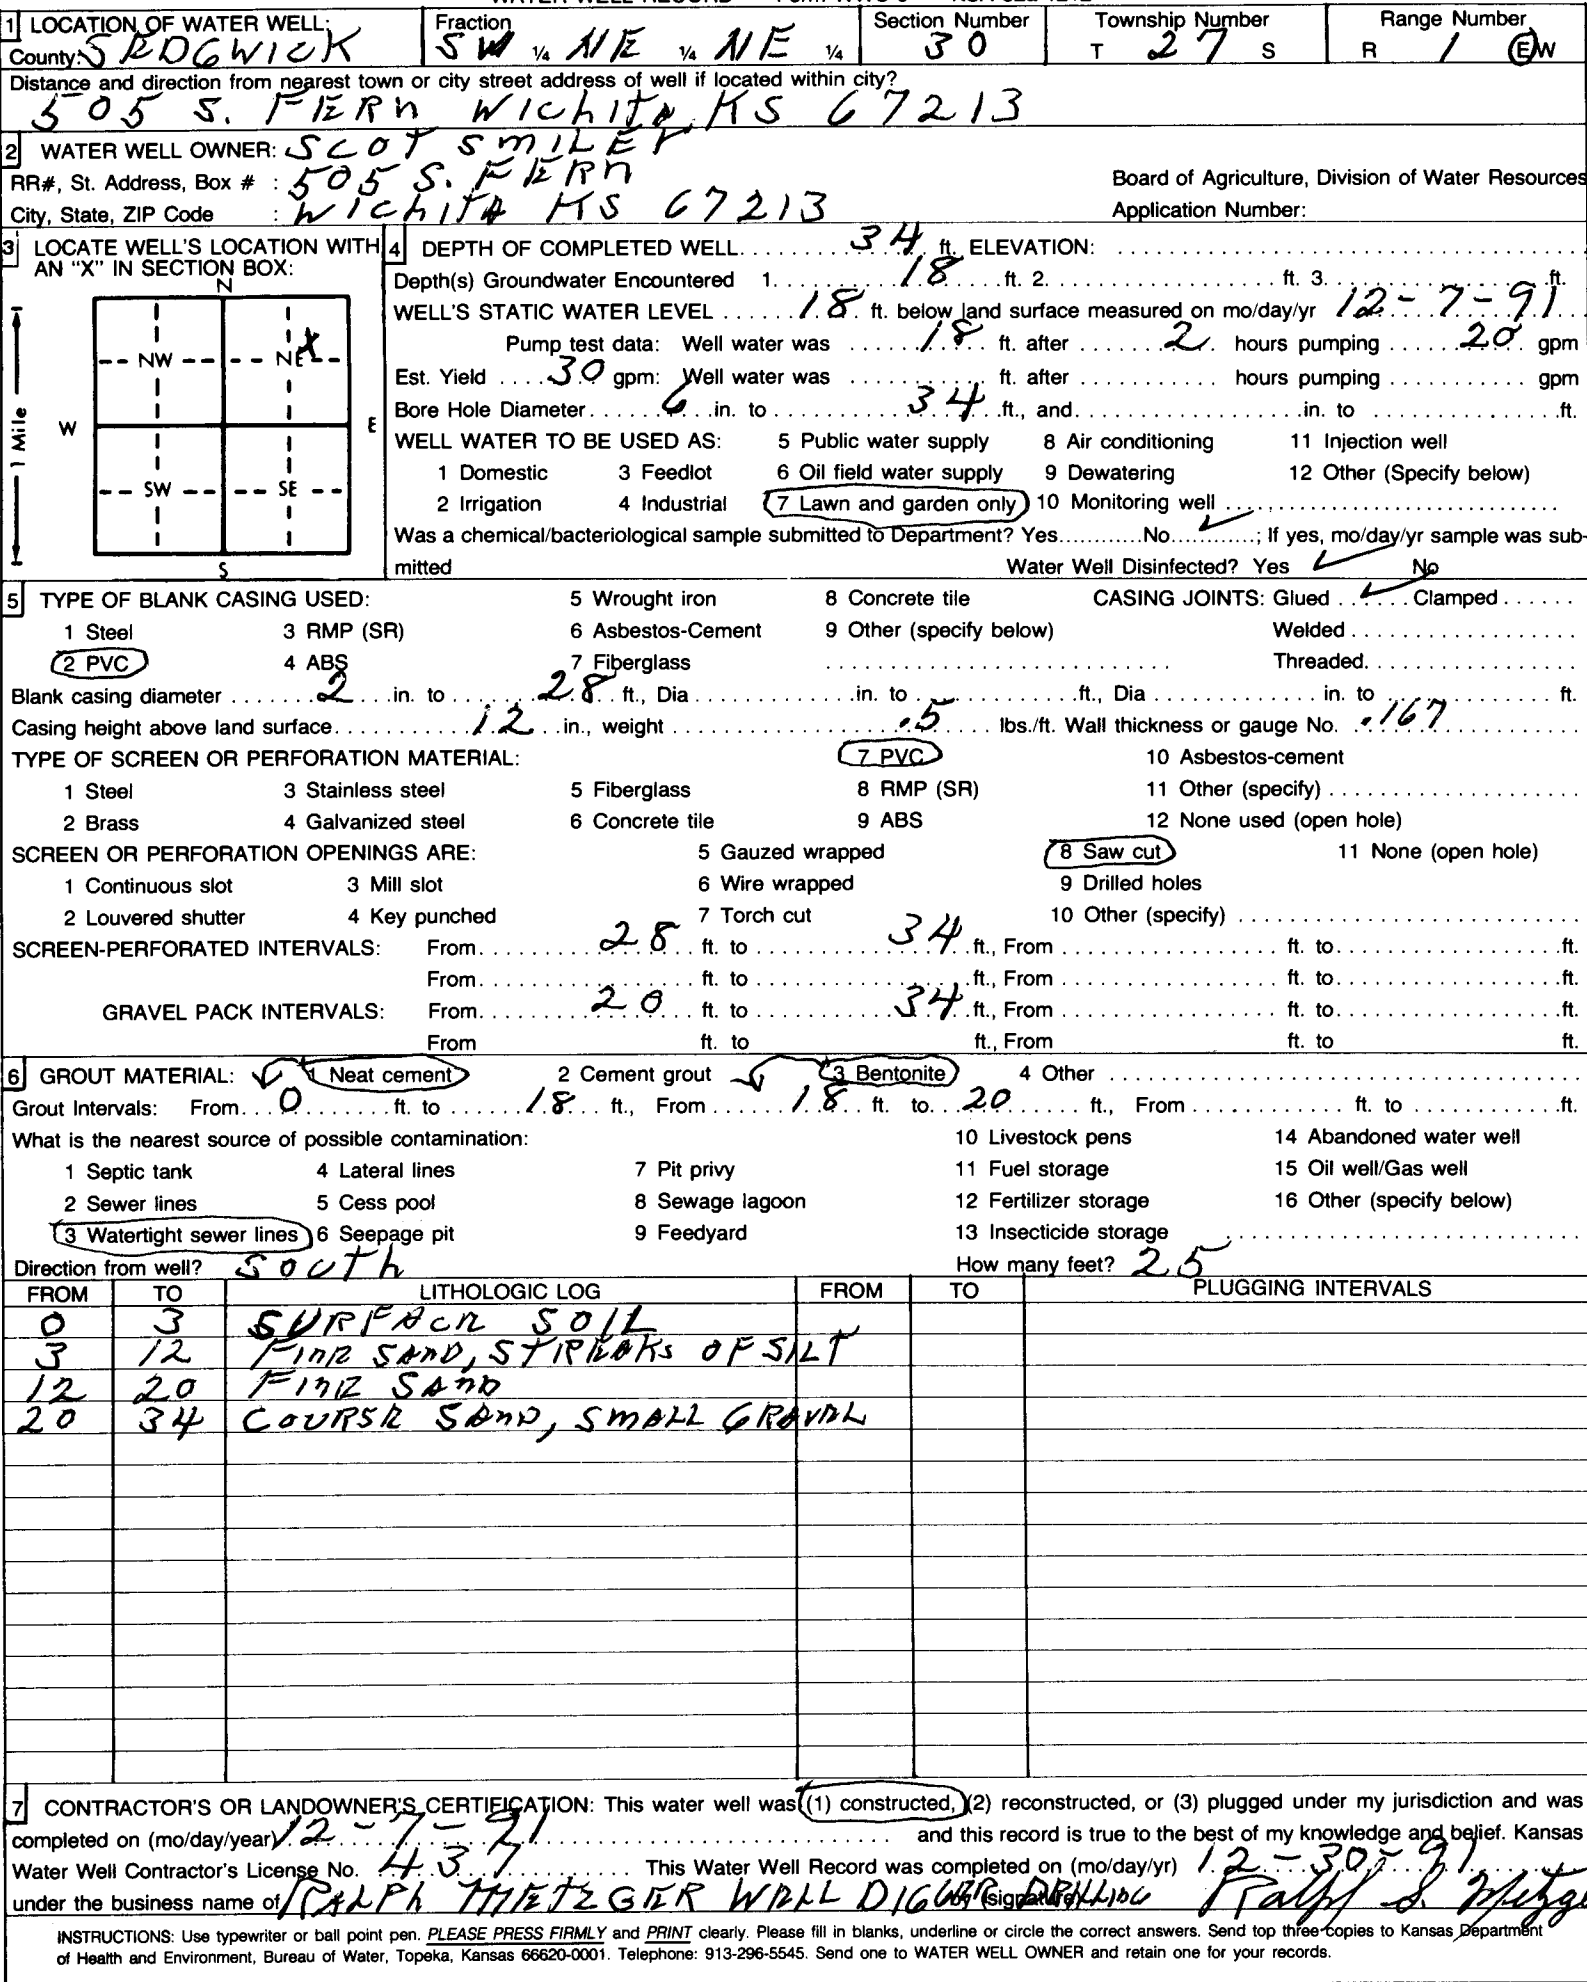 1 LOCATION OF WATER WELL: Fraction Section Number Township Number Range Number
County: SEDGWICK SW ¼ NE ¼ NE ¼ 30 T 27 S R 1 E/W
Distance and direction from nearest town or city street address of well if located within city?
505 S. FERN Wichita, KS 67213
2 WATER WELL OWNER: SCOT SMILEY
RR#, St. Address, Box # : 505 S. FERN Board of Agriculture, Division of Water Resources
City, State, ZIP Code : WICHITA KS 67213 Application Number:
3 LOCATE WELL'S LOCATION WITH AN "X" IN SECTION BOX:
N
NW NE X
W E
1 Mile
SW SE
S
4 DEPTH OF COMPLETED WELL 34 ft. ELEVATION:
Depth(s) Groundwater Encountered 1. 18 ft. 2. ft. 3. ft.
WELL'S STATIC WATER LEVEL 18 ft. below land surface measured on mo/day/yr 12-7-91
Pump test data: Well water was 18 ft. after 2 hours pumping 20 gpm
Est. Yield 30 gpm: Well water was ft. after hours pumping gpm
Bore Hole Diameter 6 in. to 34 ft., and in. to ft.
WELL WATER TO BE USED AS: 5 Public water supply 8 Air conditioning 11 Injection well
1 Domestic 3 Feedlot 6 Oil field water supply 9 Dewatering 12 Other (Specify below)
2 Irrigation 4 Industrial 7 Lawn and garden only 10 Monitoring well
Was a chemical/bacteriological sample submitted to Department? Yes No ✓; If yes, mo/day/yr sample was sub-
mitted Water Well Disinfected? Yes ✓ No
5 TYPE OF BLANK CASING USED: 5 Wrought iron 8 Concrete tile CASING JOINTS: Glued ✓ Clamped
1 Steel 3 RMP (SR) 6 Asbestos-Cement 9 Other (specify below) Welded
2 PVC 4 ABS 7 Fiberglass Threaded
Blank casing diameter 2 in. to 28 ft., Dia in. to ft., Dia in. to ft.
Casing height above land surface 12 in., weight .5 lbs./ft. Wall thickness or gauge No. .167
TYPE OF SCREEN OR PERFORATION MATERIAL: 7 PVC 10 Asbestos-cement
1 Steel 3 Stainless steel 5 Fiberglass 8 RMP (SR) 11 Other (specify)
2 Brass 4 Galvanized steel 6 Concrete tile 9 ABS 12 None used (open hole)
SCREEN OR PERFORATION OPENINGS ARE: 5 Gauzed wrapped 8 Saw cut 11 None (open hole)
1 Continuous slot 3 Mill slot 6 Wire wrapped 9 Drilled holes
2 Louvered shutter 4 Key punched 7 Torch cut 10 Other (specify)
SCREEN-PERFORATED INTERVALS: From 28 ft. to 34 ft., From ft. to ft.
From ft. to ft., From ft. to ft.
GRAVEL PACK INTERVALS: From 20 ft. to 34 ft., From ft. to ft.
From ft. to ft., From ft. to ft.
6 GROUT MATERIAL: 1 Neat cement 2 Cement grout 3 Bentonite 4 Other
Grout Intervals: From 0 ft. to 18 ft., From 18 ft. to 20 ft., From ft. to ft.
What is the nearest source of possible contamination: 10 Livestock pens 14 Abandoned water well
1 Septic tank 4 Lateral lines 7 Pit privy 11 Fuel storage 15 Oil well/Gas well
2 Sewer lines 5 Cess pool 8 Sewage lagoon 12 Fertilizer storage 16 Other (specify below)
3 Watertight sewer lines 6 Seepage pit 9 Feedyard 13 Insecticide storage
Direction from well? South How many feet? 25
FROM TO LITHOLOGIC LOG FROM TO PLUGGING INTERVALS
0 3 SURFACE SOIL
3 12 FINE SAND, STREAKS OF SILT
12 20 FINE SAND
20 34 COURSE SAND, SMALL GRAVEL
7 CONTRACTOR'S OR LANDOWNER'S CERTIFICATION: This water well was (1) constructed, (2) reconstructed, or (3) plugged under my jurisdiction and was
completed on (mo/day/year) 12-7-91 and this record is true to the best of my knowledge and belief. Kansas
Water Well Contractor's License No. 437 This Water Well Record was completed on (mo/day/yr) 12-30-91
under the business name of RALPH METZGER WELL DIGGER DRILLING by (signature) Ralph S. Metzge
INSTRUCTIONS: Use typewriter or ball point pen. PLEASE PRESS FIRMLY and PRINT clearly. Please fill in blanks, underline or circle the correct answers. Send top three copies to Kansas Department
of Health and Environment, Bureau of Water, Topeka, Kansas 66620-0001. Telephone: 913-296-5545. Send one to WATER WELL OWNER and retain one for your records.